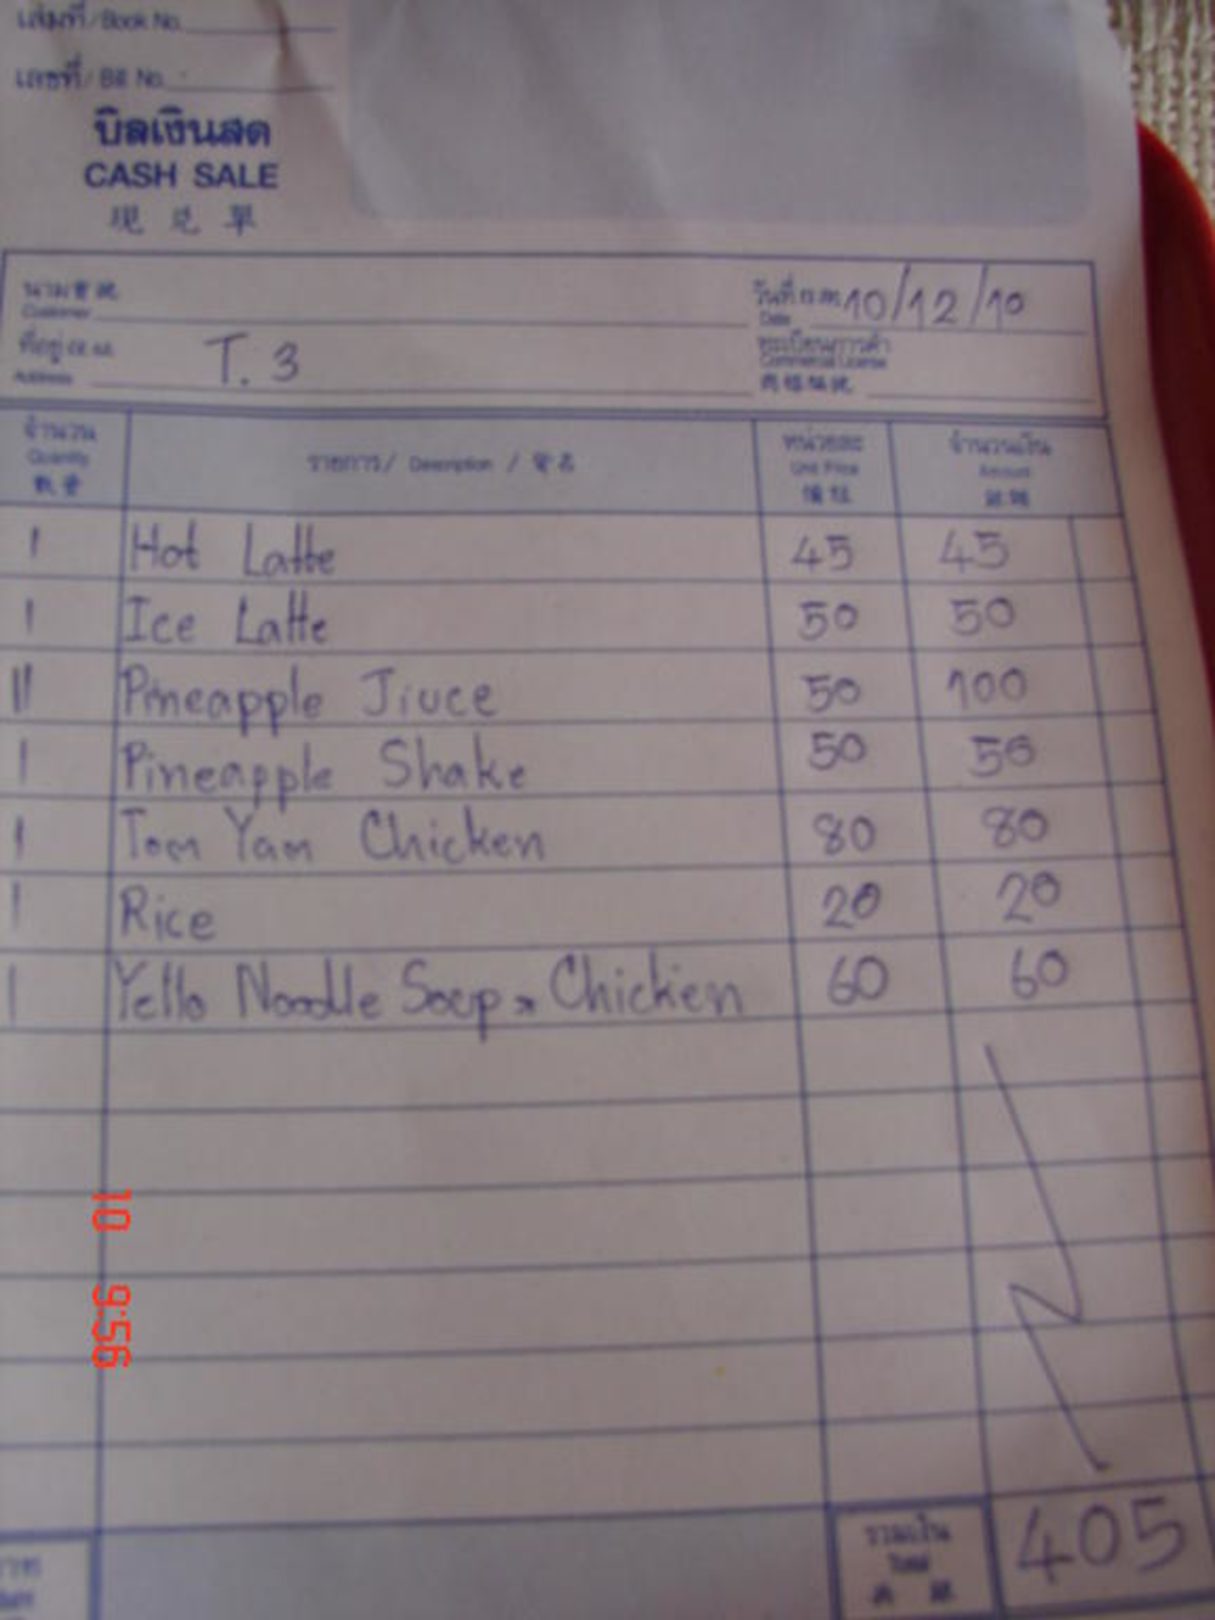 เล่มที่/Book No.
เลขที่/Bill No.
บิลเงินสด
CASH SALE
現 兑 單
นาม
Customer
วันที่ 10/12/10
Date
ที่อยู่
Address
T. 3
ทะเบียนการค้า
Commercial License
จำนวน
Quantity
รายการ / Description /
หน่วยละ
Unit Price
จำนวนเงิน
Amount
1 Hot Latte 45 45
1 Ice Latte 50 50
11 Pineapple Jiuce 50 100
1 Pineapple Shake 50 50
1 Tom Yam Chicken 80 80
1 Rice 20 20
1 Yello Noodle Soup Chicken 60 60
10 9:56
รวมเงิน
Total
405